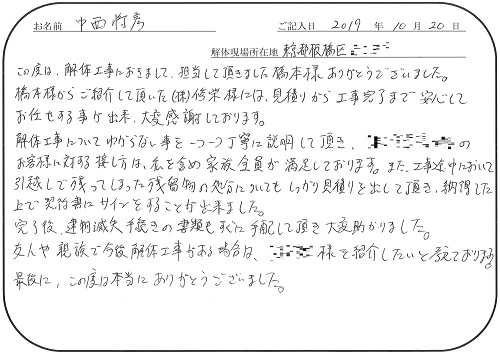 お名前 中西 ご記入日 2019 年 10 月 20 日
解体現場所在地 東京都板橋区
この度は、解体工事におきまして、担当して頂きました橋本様ありがとうございました。
橋本様からご紹介して頂いた(株)修栄様には、見積りから工事完了まで安心して
お任せする事が出来、大変感謝しております。
解体工事についてわからない事を一つ一つ丁寧に説明して頂き、の
お客様に対する接し方は、私を含め家族全員が満足しております。また、工事途中において
引越しで残ってしまった残留物の処分についてもしっかり見積りを出して頂き、納得した
上で契約書にサインをすることが出来ました。
完了後、建物滅失手続きの書類もすぐに手配して頂き大変助かりました。
友人や親族で今後解体工事がある場合は、様を紹介したいと考えております。
最後に、この度は本当にありがとうございました。